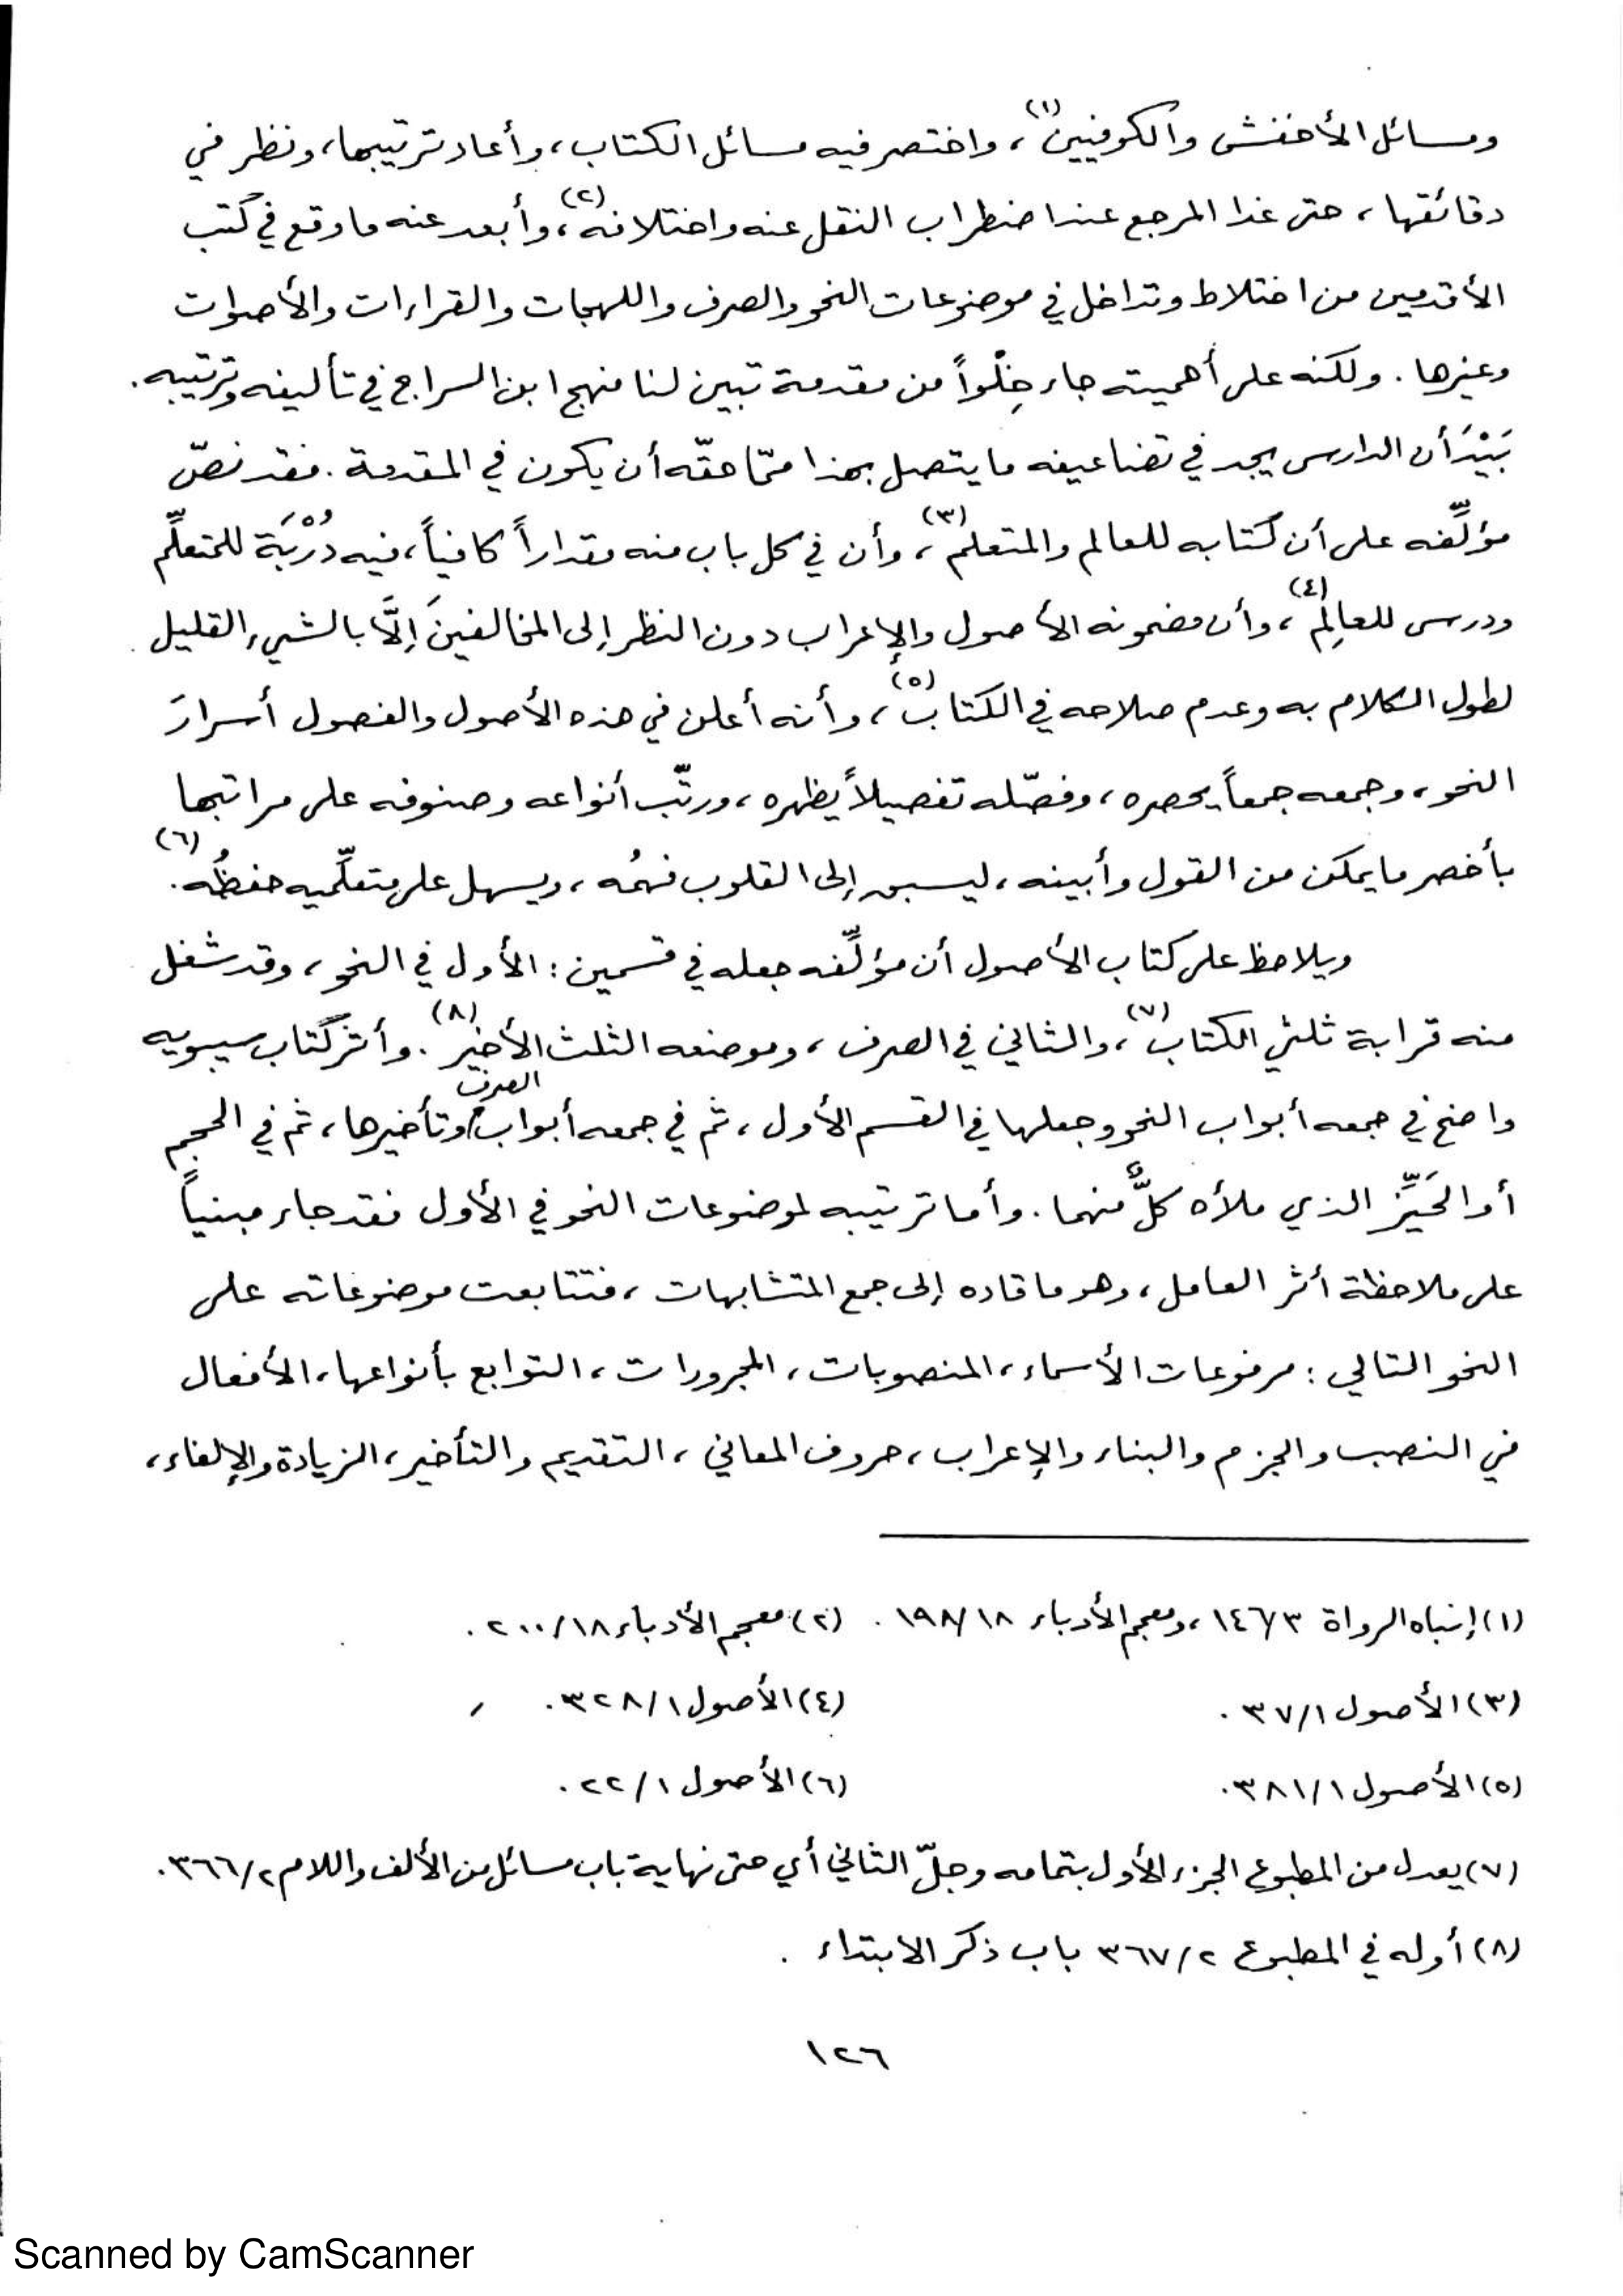 ومسائل الأخفش والكوفيين(١)، واختصر فيه مسائل الكتاب، وأعاد ترتيبها، ونظر في
دقائقها، حتى غدا المرجع عند اضطراب النقل عنه واختلافه(٢)، وأبعد عنه ما وقع في كتب
الأقدمين من اختلاط وتداخل في موضوعات النحو والصرف واللهجات والقراءات والأصوات
وغيرها. ولكنه على أهميته جاء خِلْواً من مقدمة تبين لنا منهج ابن السراج في تأليفه وترتيبه.
بَيْدَ أن الدارس يجد في تضاعيفه ما يتصل بهذا ممّا حقّه أن يكون في المقدمة. فقد نصّ
مؤلِّفه على أن كتابه للعالم والمتعلم(٣)، وأن في كل باب منه مقداراً كافياً، فيه دُرْبَة للمتعلِّم
ودرس للعالِم(٤)، وأن مضمونه الأصول والإعراب دون النظر إلى المخالفينَ إلَّا بالشيء القليل
لطول الكلام به وعدم صلاحه في الكتاب(٥)، وأنه أعلن في هذه الأصول والفصول أسرارَ
النحو، وجمعه جمعاً يحصره، وفصّله تفصيلاً يظهره، ورتّب أنواعه وصنوفه على مراتبها
بأخصر ما يمكن من القول وأبينه، ليسبق إلى القلوب فهمُه، ويسهل على متعلِّميه حفظُه(٦).
ويلاحظ على كتاب الأصول أن مؤلِّفه جعله في قسمين: الأول في النحو، وقد شغل
منه قرابة ثلثي الكتاب(٧)، والثاني في الصرف، وموضعه الثلث الأخير(٨). وأثر كتاب سيبويه
واضح في جمعه أبواب النحو وجعلها في القسم الأول، ثم في جمعه أبواب الصرف وتأخيرها، ثم في الحجم
أو الحَيِّز الذي ملأه كلٌّ منهما. وأما ترتيبه لموضوعات النحو في الأول فقد جاء مبنياً
على ملاحظة أثر العامل، وهو ما قاده إلى جمع المتشابهات، فتتابعت موضوعاته على
النحو التالي: مرفوعات الأسماء، المنصوبات، المجرورات، التوابع بأنواعها، الأفعال
في النصب والجزم والبناء والإعراب، حروف المعاني، التقديم والتأخير، الزيادة والإلغاء،
(١) إنباه الرواة ١٤٦/٣، ومعجم الأدباء ١٩٨/١٨. (٢) معجم الأدباء ٢٠٠/١٨.
(٣) الأصول ٣٧/١. (٤) الأصول ٣٢٨/١.
(٥) الأصول ٣٨١/١. (٦) الأصول ٢٢/١.
(٧) يعدل من المطبوع الجزء الأول بتمامه وجلّ الثاني أي حتى نهاية باب مسائل من الألف واللام ٣٦٦/٢.
(٨) أوله في المطبوع ٣٦٧/٢ باب ذكر الابتداء.
١٢٦
Scanned by CamScanner